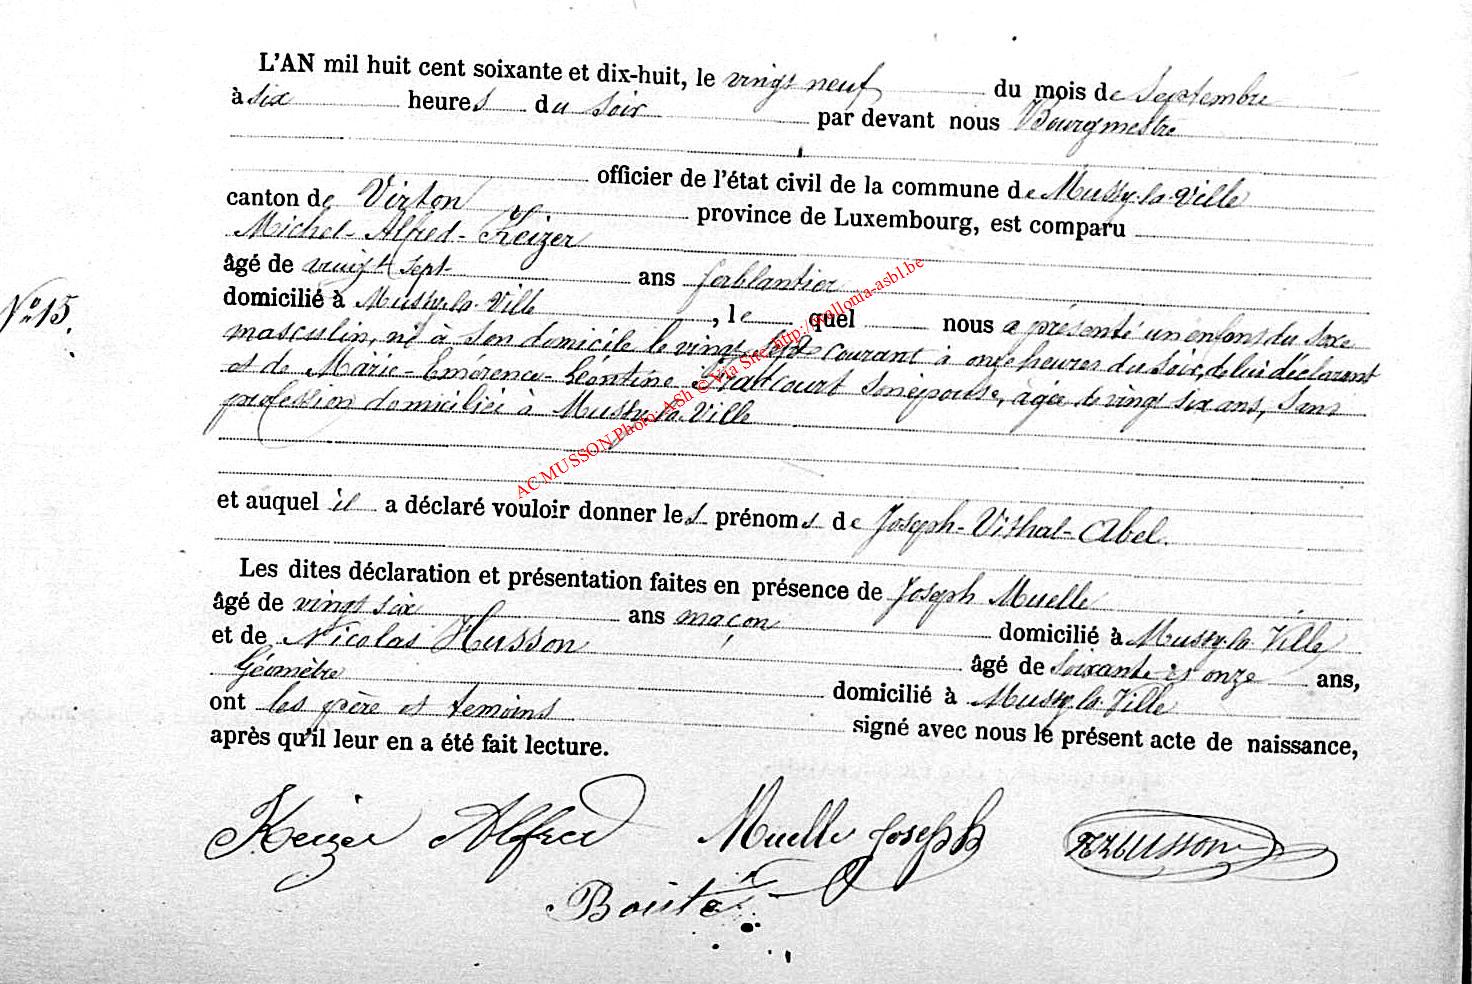 L'AN mil huit cent soixante et dix-huit, le vingt neuf du mois de Septembre
à six heures du soir par devant nous Bourgmestre
officier de l'état civil de la commune de Mussy-la-Ville
canton de Virton province de Luxembourg, est comparu
Michel-Alfred-Keizer
âgé de vingt sept ans ferblantier
domicilié à Mussy-la-Ville, le quel nous a présenté un enfant du sexe
N° 15.
masculin, né à son domicile le vingt courant à onze heures du soir, de lui déclarant
et de Marie-Emérence-Léontine son épouse, âgée de vingt six ans, Sans
profession domiciliée à Mussy-la-Ville
et auquel il a déclaré vouloir donner les prénoms de Joseph-Vithal-Abel.
Les dites déclaration et présentation faites en présence de Joseph Muelle
âgé de vingt six ans maçon domicilié à Mussy-la-Ville
et de Nicolas Husson âgé de soixante et onze ans,
Géomètre domicilié à Mussy-la-Ville
ont les père et témoins signé avec nous le présent acte de naissance,
après qu'il leur en a été fait lecture.
Keizer Alfred Muelle Joseph Husson
Bouté
AC MUSSON Photo: ASh © Via Site: http://wallonia-asbl.be